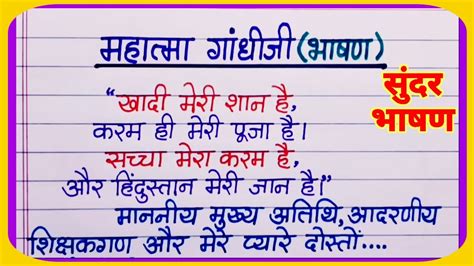 महात्मा गांधीजी (भाषण)
सुंदर
भाषण
“खादी मेरी शान है,
करम ही मेरी पूजा है।
सच्चा मेरा करम है,
और हिंदुस्तान मेरी जान है।”
माननीय मुख्य अतिथि, आदरणीय
शिक्षकगण और मेरे प्यारे दोस्तों....